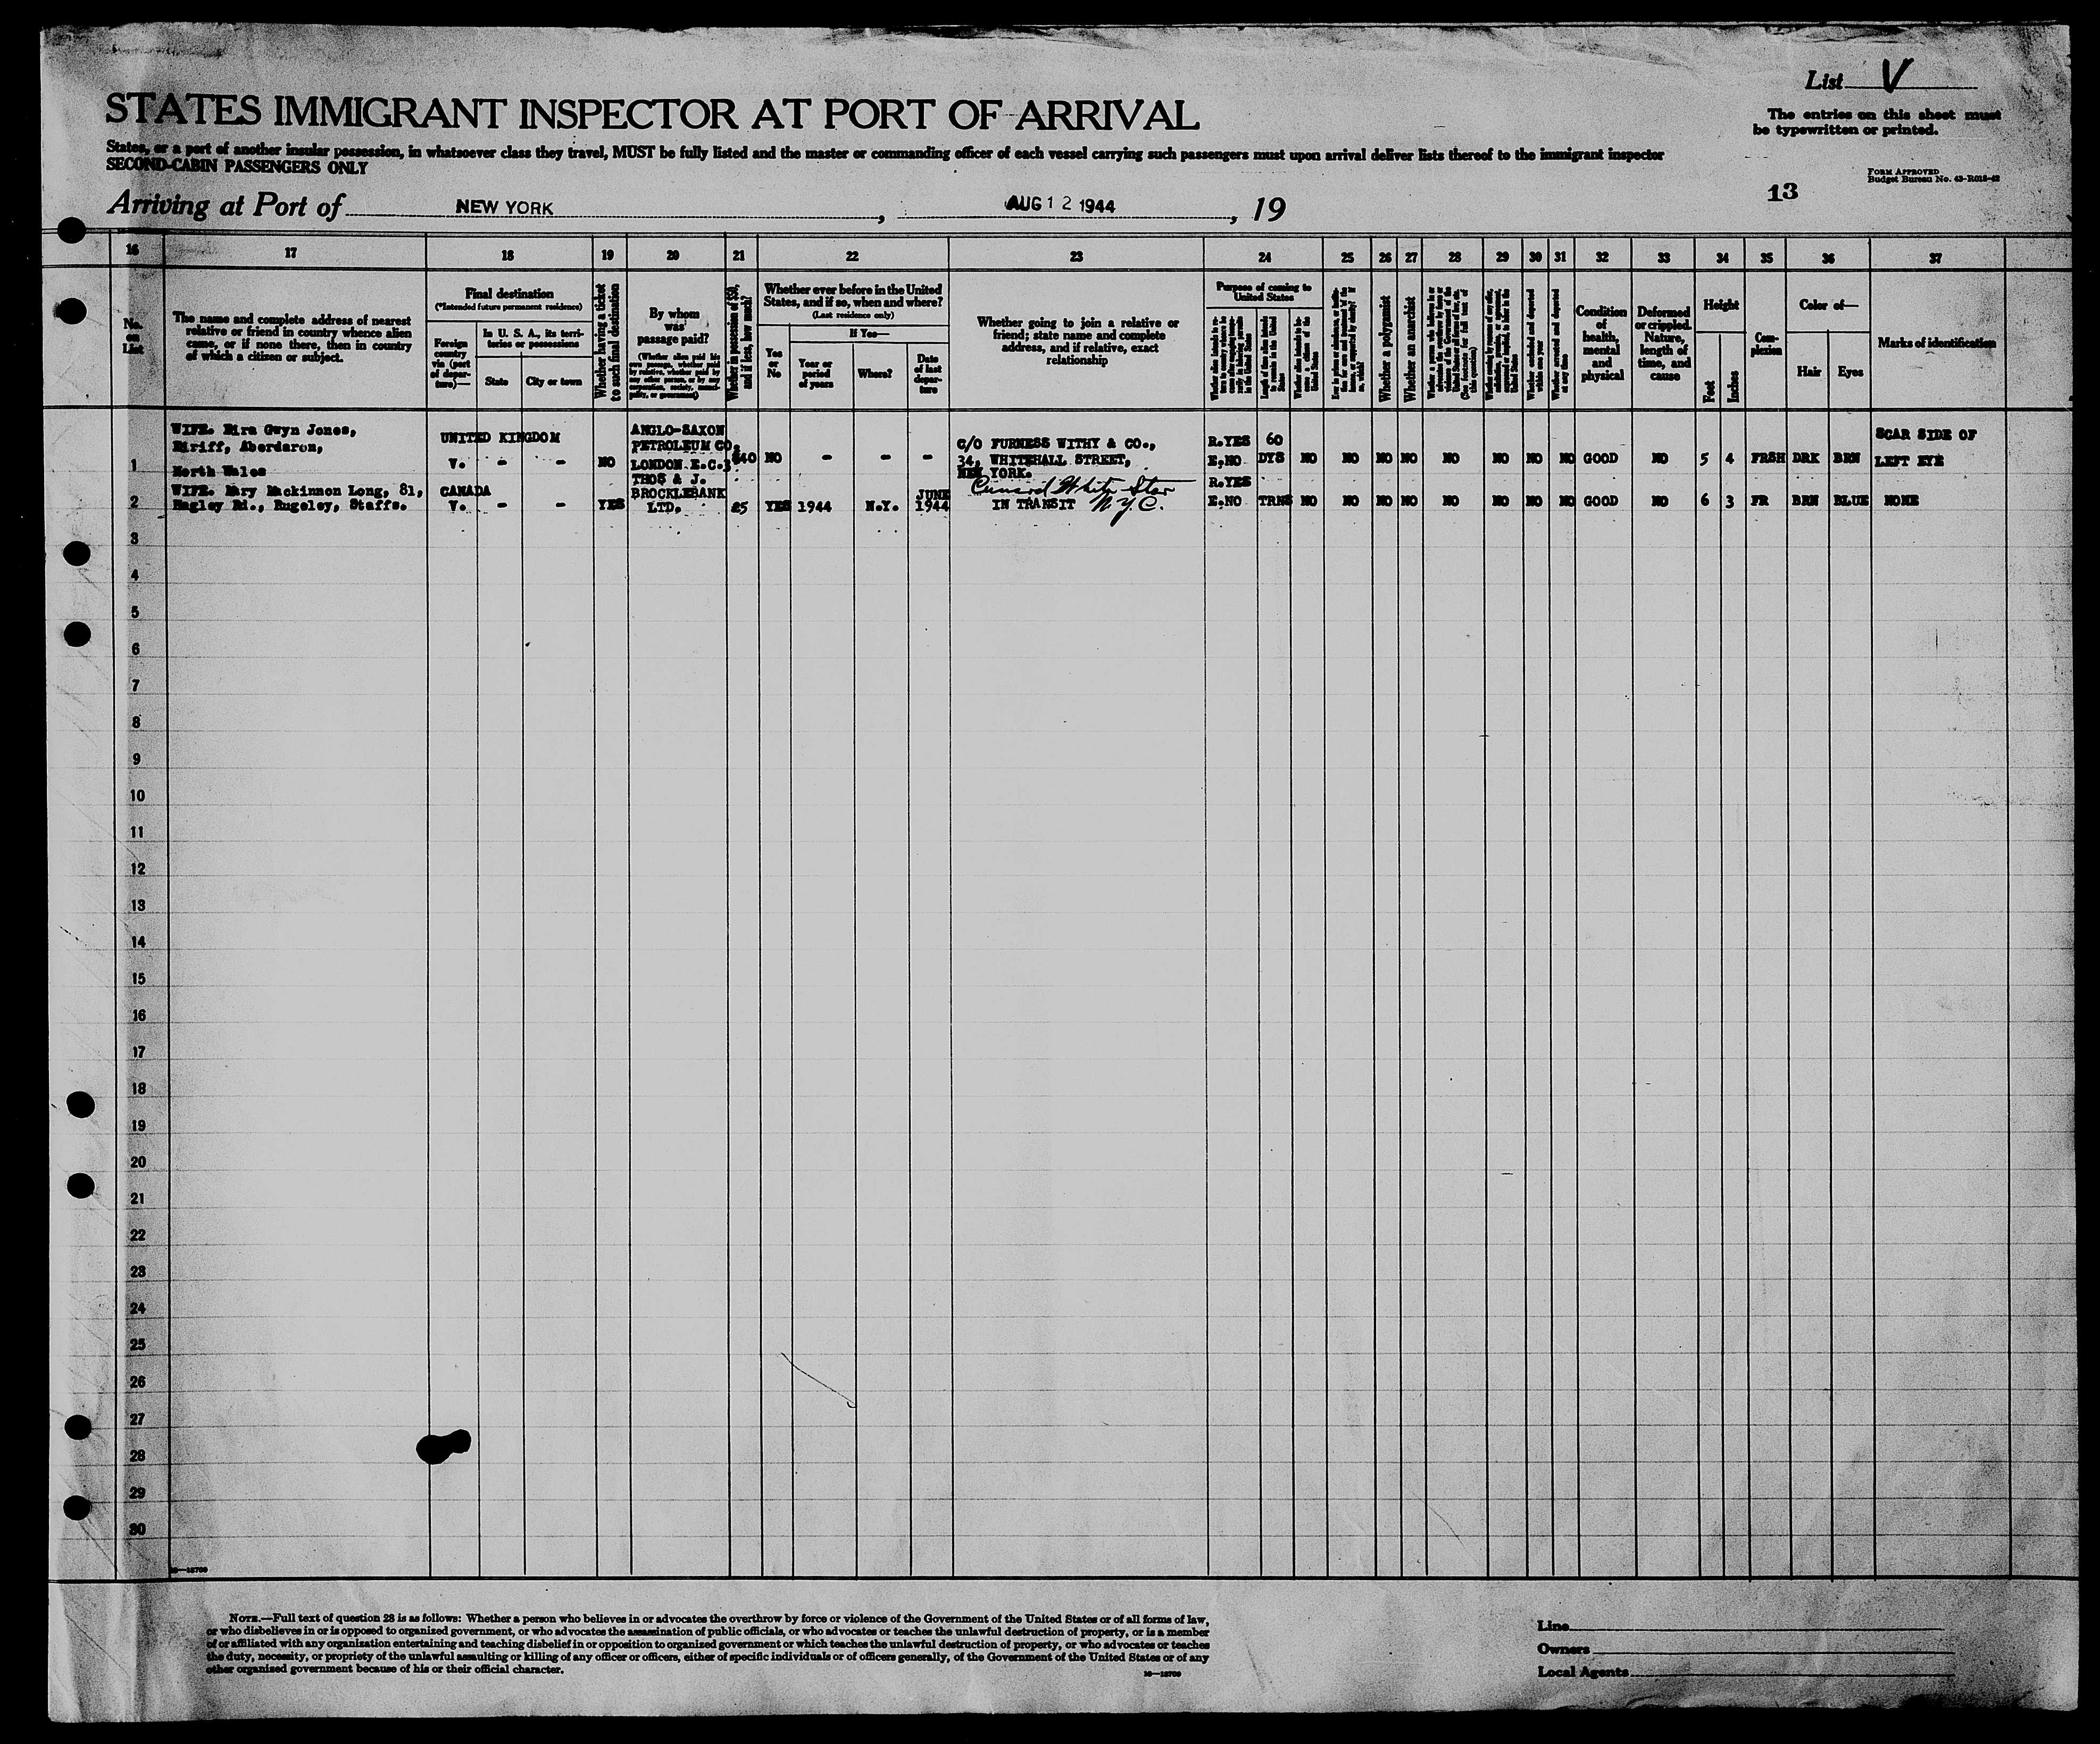 List V
The entries on this sheet must
be typewritten or printed.
STATES IMMIGRANT INSPECTOR AT PORT OF ARRIVAL
States, or a port of another insular possession, in whatsoever class they travel, MUST be fully listed and the master or commanding officer of each vessel carrying such passengers must upon arrival deliver lists thereof to the immigrant inspector
SECOND-CABIN PASSENGERS ONLY
FORM APPROVED
Budget Bureau No. 43-R018-42
13
Arriving at Port of NEW YORK, AUG 12 1944, 19
16 17 18 19 20 21 22 23 24 25 26 27 28 29 30 31 32 33 34 35 36 37
No. on List
The name and complete address of nearest
relative or friend in country whence alien
came, or if none there, then in country
of which a citizen or subject.
Final destination
(*Intended future permanent residence)
Foreign country via (port of departure)—
In U. S. A., its territories or possessions
State
City or town
Whether having a ticket to such final destination
By whom was passage paid?
(Whether alien paid his own passage, whether paid by relative, whether paid by any other person, or by any corporation, society, municipality, or government)
Whether in possession of $50, and if less, how much?
Whether ever before in the United
States, and if so, when and where?
(Last residence only)
Yes or No
If Yes—
Year or period of years
Where?
Date of last departure
Whether going to join a relative or
friend; state name and complete
address, and if relative, exact
relationship
Purpose of coming to United States
Whether a polygamist
Whether an anarchist
Condition of health, mental and physical
Deformed or crippled. Nature, length of time, and cause
Height
Feet
Inches
Complexion
Color of—
Hair
Eyes
Marks of identification
WIFE. Eira Gwyn Jones,
Biriff, Aberdaron,
North Wales
1 UNITED KINGDOM V. - - NO ANGLO-SAXON PETROLEUM CO. LONDON E.C.3 $40 NO - - - C/O FURNESS WITHY & CO., 34, WHITEHALL STREET, NEW YORK. R.YES E.NO 60 DYS NO NO NO NO NO NO NO NO GOOD NO 5 4 FRSH DRK BRN SCAR SIDE OF LEFT EYE
WIFE. Mary Mackinnon Long, 81,
Hagley Rd., Rugeley, Staffs.
2 CANADA V. - - YES THOS & J. BROCKLEBANK LTD. 25 YES 1944 N.Y. JUNE 1944 Cunard White Star IN TRANSIT N.Y.C. R.YES E.NO TRNS NO NO NO NO NO NO NO NO GOOD NO 6 3 FR BRN BLUE NONE
3
4
5
6
7
8
9
10
11
12
13
14
15
16
17
18
19
20
21
22
23
24
25
26
27
28
29
30
16—13700
NOTE.—Full text of question 28 is as follows: Whether a person who believes in or advocates the overthrow by force or violence of the Government of the United States or of all forms of law,
or who disbelieves in or is opposed to organized government, or who advocates the assassination of public officials, or who advocates or teaches the unlawful destruction of property, or is a member
of or affiliated with any organization entertaining and teaching disbelief in or opposition to organized government or which teaches the unlawful destruction of property, or who advocates or teaches
the duty, necessity, or propriety of the unlawful assaulting or killing of any officer or officers, either of specific individuals or of officers generally, of the Government of the United States or of any
other organized government because of his or their official character.
16—13700
Line
Owners
Local Agents